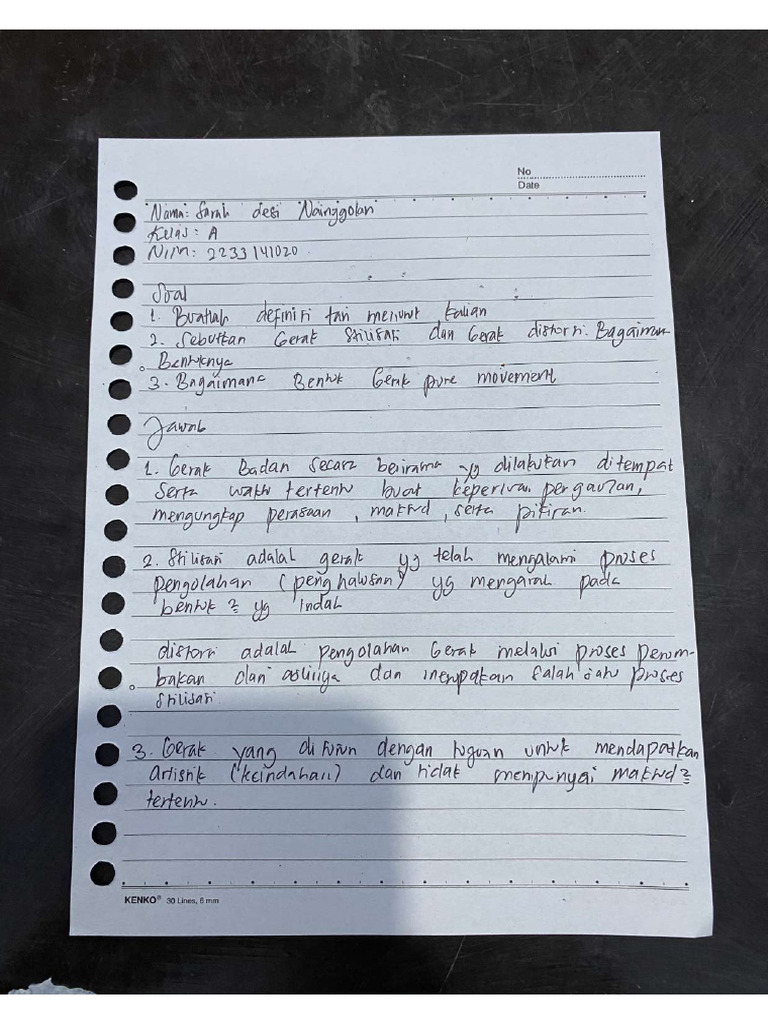 No
Date
Nama: Sarah desi Nainggolan
Kelas: A
Nim: 2233141020
Soal
1. Buatlah definiri tari menurut kalian
2. Sebutkan Gerak Stilisasi dan Gerak distorsi. Bagaiman
Bentuknya
3. Bagaimana Bentuk Gerak pure movement
Jawab
1. Gerak Badan secara berirama yg dilakukan ditempat
Serta waktu tertentu buat keperluan pergaulan,
mengungkap perasaan, maksud, serta pikiran.
2. Stilisasi adalah gerak yg telah mengalami proses
pengolahan (penghalusan) yg mengarah pada
bentuk2 yg indah
distorsi adalah pengolahan Gerak melalui proses perom-
bakan dari aslinya dan merupakan salah satu proses
Stilisasi
3. Gerak yang di susun dengan tuguan untuk mendapatkan
artistik (keindahan) dan tidak mempunyai maksud2
tertentu.
KENKO® 30 Lines, 6 mm